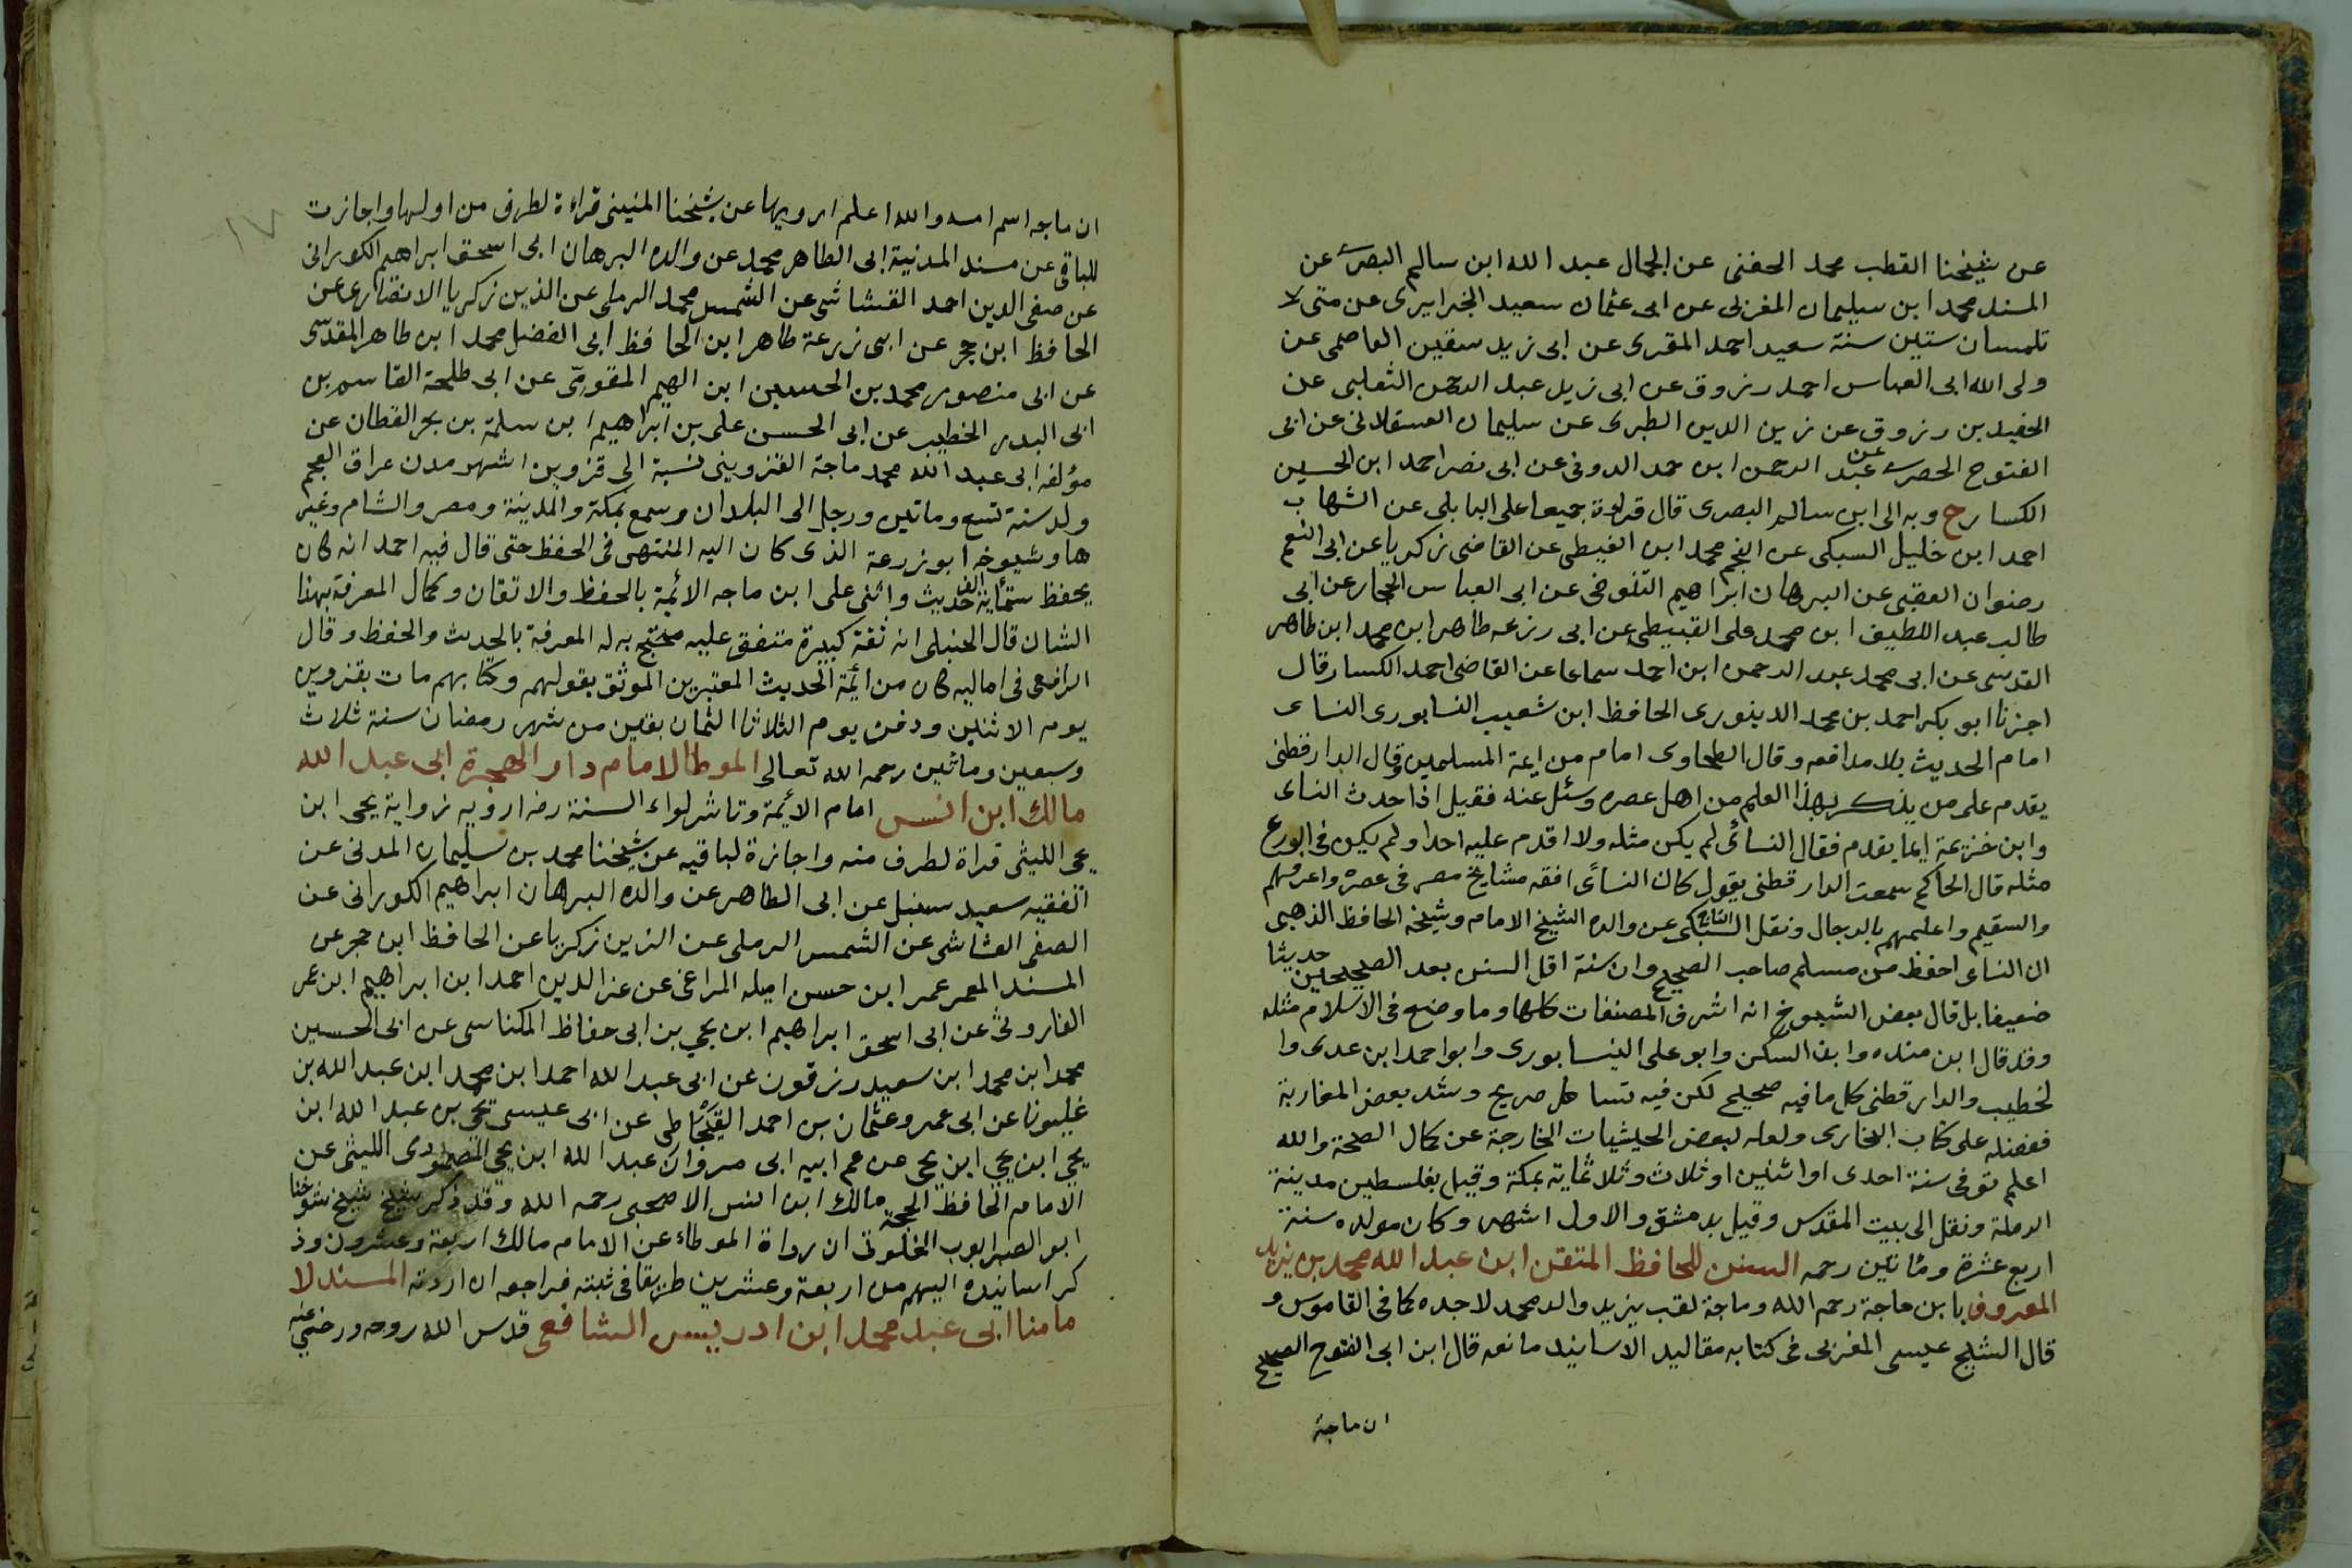 عن شيخنا القطب محمد الحفنى عن الجمال عبد الله ابن سالم البصرى عن
المسند محمد ابن سيليمان المغربى عن ابى عثمان سعيد الجزايرى عن متى لا
تلمسان ستين سنة سعيد احمد المقرى عن ابى زيد سقين العاصمى عن
ولى الله ابى العباس احمد رزوق عن ابى زيل عبد الرحمن الثعلبى عن
الحفيد بن رزوق عن زين الدين الطبرى عن سليمان العسقلانى عن ابى
الفتوح الحصرى عن عبد الرحمن ابن حمد الدونى عن ابى نصر احمد ابن الحسين
الكسار ح وبه الى ابن سالم البصرى قال قراءة جميعا على البابلى عن الشهاب
احمد ابن خليل السبكى عن النجم محمد ابن الغيطى عن القاضى زكريا عن ابى النعم
رضوان العقبى عن البرهان ابراهيم التنوخى عن ابى العباس الحجار عن ابى
طالب عبد اللطيف ابن محمد على القبيطى عن ابى رزعه طاهر ابن محمد ابن طاهر
القدسى عن ابى محمد عبد الرحمن ابن احمد سماعا عن القاضى احمد الكسار قال
اجزنا ابو بكر احمد بن محمد الدينورى الحافظ ابن شعيب النسابورى النساى
امام الحديث بلا مدافعه وقال الطحاوى امام من ايمة المسلمين وقال الدارقطنى
يقدم على من يذكر بهذا العلم من اهل عصره وسئل عنه فقيل اذا حدث النساى
وابن خزيمة ايما يقدم فقال النسائى لم يكن مثله ولا اقدم عليه احدا ولم يكن فى الورع
مثله قال الحاكم سمعت الدارقطنى يقول كان النسائى افقه مشايخ مصر فى عصره واعرفهم
والسقيم واعلمهم بالرجال ونقل التاج السبكى عن والده الشيخ الامام وشيخه الحافظ الذهبى
ان النساى احفظ من مسلم صاحب الصحيح وان سنة اقل السنن بعد الصحيحين حديثا
ضعيفا بل قال بعض الشيوخ انه اشرف المصنفات كلها وما وضع فى الاسلام مثله
وقد قال ابن منده وابن السكن وابو على النيسابورى وابو احمد ابن عدى وا
لخطيب والدارقطنى كل ما فيه صحيح لكن فيه تساهل صريح وشد بعض المغاربة
ففضله على كتاب البخارى ولعله لبعض الحيثيات الخارجة عن كمال الصحة والله
اعلم توفى سنة احدى او اثنين او ثلاث وثلاثمائة بمكة وقيل بفلسطين مدينة
الرملة ونقل الى بيت المقدس وقيل بدمشق والاول اشهر وكان مولده سنة
اربع عشرة ومائتين رحمه السنن للحافظ المتقن ابن عبد الله محمد بن يزيد
المعروف بابن ماجة رحمه الله وماجة لقب يزيد والد محمد لا جده كما فى القاموس و
قال الشيخ عيسى المغربى فى كتابه مقاليد الاسانيد ما نصه قال ابن ابى الفتوح الصحيح
ان ماجة
١٧
ان ماجه اسم امه والله اعلم ارويها عن شيخنا المنينى قراءة لطرف من اولها واجازت
للباقى عن مسند المدنية ابى الطاهر محمد عن والده البرهان ابى اسحق ابراهيم الكورانى
عن صفى الدين احمد القشاشى عن الشمس محمد الرملى عن الذين زكريا الانصارى عن
الحافظ ابن حجر عن ابى زرعة طاهر ابن الحافظ ابى الفضل محمد ابن طاهر المقدسى
عن ابى منصور محمد بن الحسين ابن الهيم المقومى عن ابى طلحة القاسم بن
ابى البدر الخطيب عن ابى الحسن على بن ابراهيم ابن سلمة بن بحر القطان عن
مؤلفه ابى عبد الله محمد ماجة القزوينى نسبة الى قزوين اشهر مدن عراق العجم
ولد سنة تسع وماتين ورحل الى البلدان وسمع بمكة والمدينة ومصر والشام وغير
ها وشيوخه ابو زرعة الذى كان اليه المنتهى فى الحفظ حتى قال فيه احمد انه كان
يحفظ ستمائة الف حديث واثنى على ابن ماجه الائمة بالحفظ والاتقان وكمال المعرفة بهذا
الشان قال الحنبلى انه ثقة كبيرة متفق عليه محتج به له المعرفة بالحديث والحفظ وقال
الرافعى فى اماليه كان من ائمة الحديث المعتبرين الموثق بقولهم وكتابهم مات بقزوين
يوم الاثنين ودفن يوم الثلاثا الثمان بقين من شهر رمضان سنة ثلاث
وسبعين ومائتين رحمه الله تعالى الموطا لامام دار الهجرة ابى عبد الله
مالك ابن انس امام الائمة وناشر لواء السنة رضه ارويه زواية يحى ابن
يحى الليثى قراة لطرف منه واجازة لباقيه عن شيخنا محمد بن سليمان المدنى عن
الفقيه سعيد سنبل عن ابى الطاهر عن والده البرهان ابراهيم الكورانى عن
الصفى القشاشى عن الشمس الرملى عن الزين زكريا عن الحافظ ابن حجر عن
المسند المعمر عمر ابن حسن اميله المراغى عن عز الدين احمد ابن ابراهيم ابن عمر
الفاروثى عن ابى اسحق ابراهيم ابن يحي بن ابى حفاظ المكناسى عن ابى الحسين
محمد ابن محمد ابن سعيد رزقون عن ابى عبد الله احمد ابن محمد ابن عبد الله بن
غلبونا عن ابى عمرو عثمان بن احمد القيجاطى عن ابى عيسى يحي بن عبد الله ابن
يحي ابن يحي ابن يحى عن عم ابيه ابى مروان عبد الله ابن يحي المصمودى الليثى عن
الامام الحافظ الحجة مالك ابن انس الاصبحى رحمه الله وقد ذكر شيخ شيخ شيوخنا
ابو الصبر ايوب الخلوتى ان رواة الموطاء عن الامام مالك اربعة وعشرون وذ
كر اسانيده اليهم من اربعة وعشرين طريقا فى ثبته فراجعه ان اردته المسند لا
مامنا ابى عبد محمد ابن ادريس الشافعى قدس الله روحه ورضى عنه